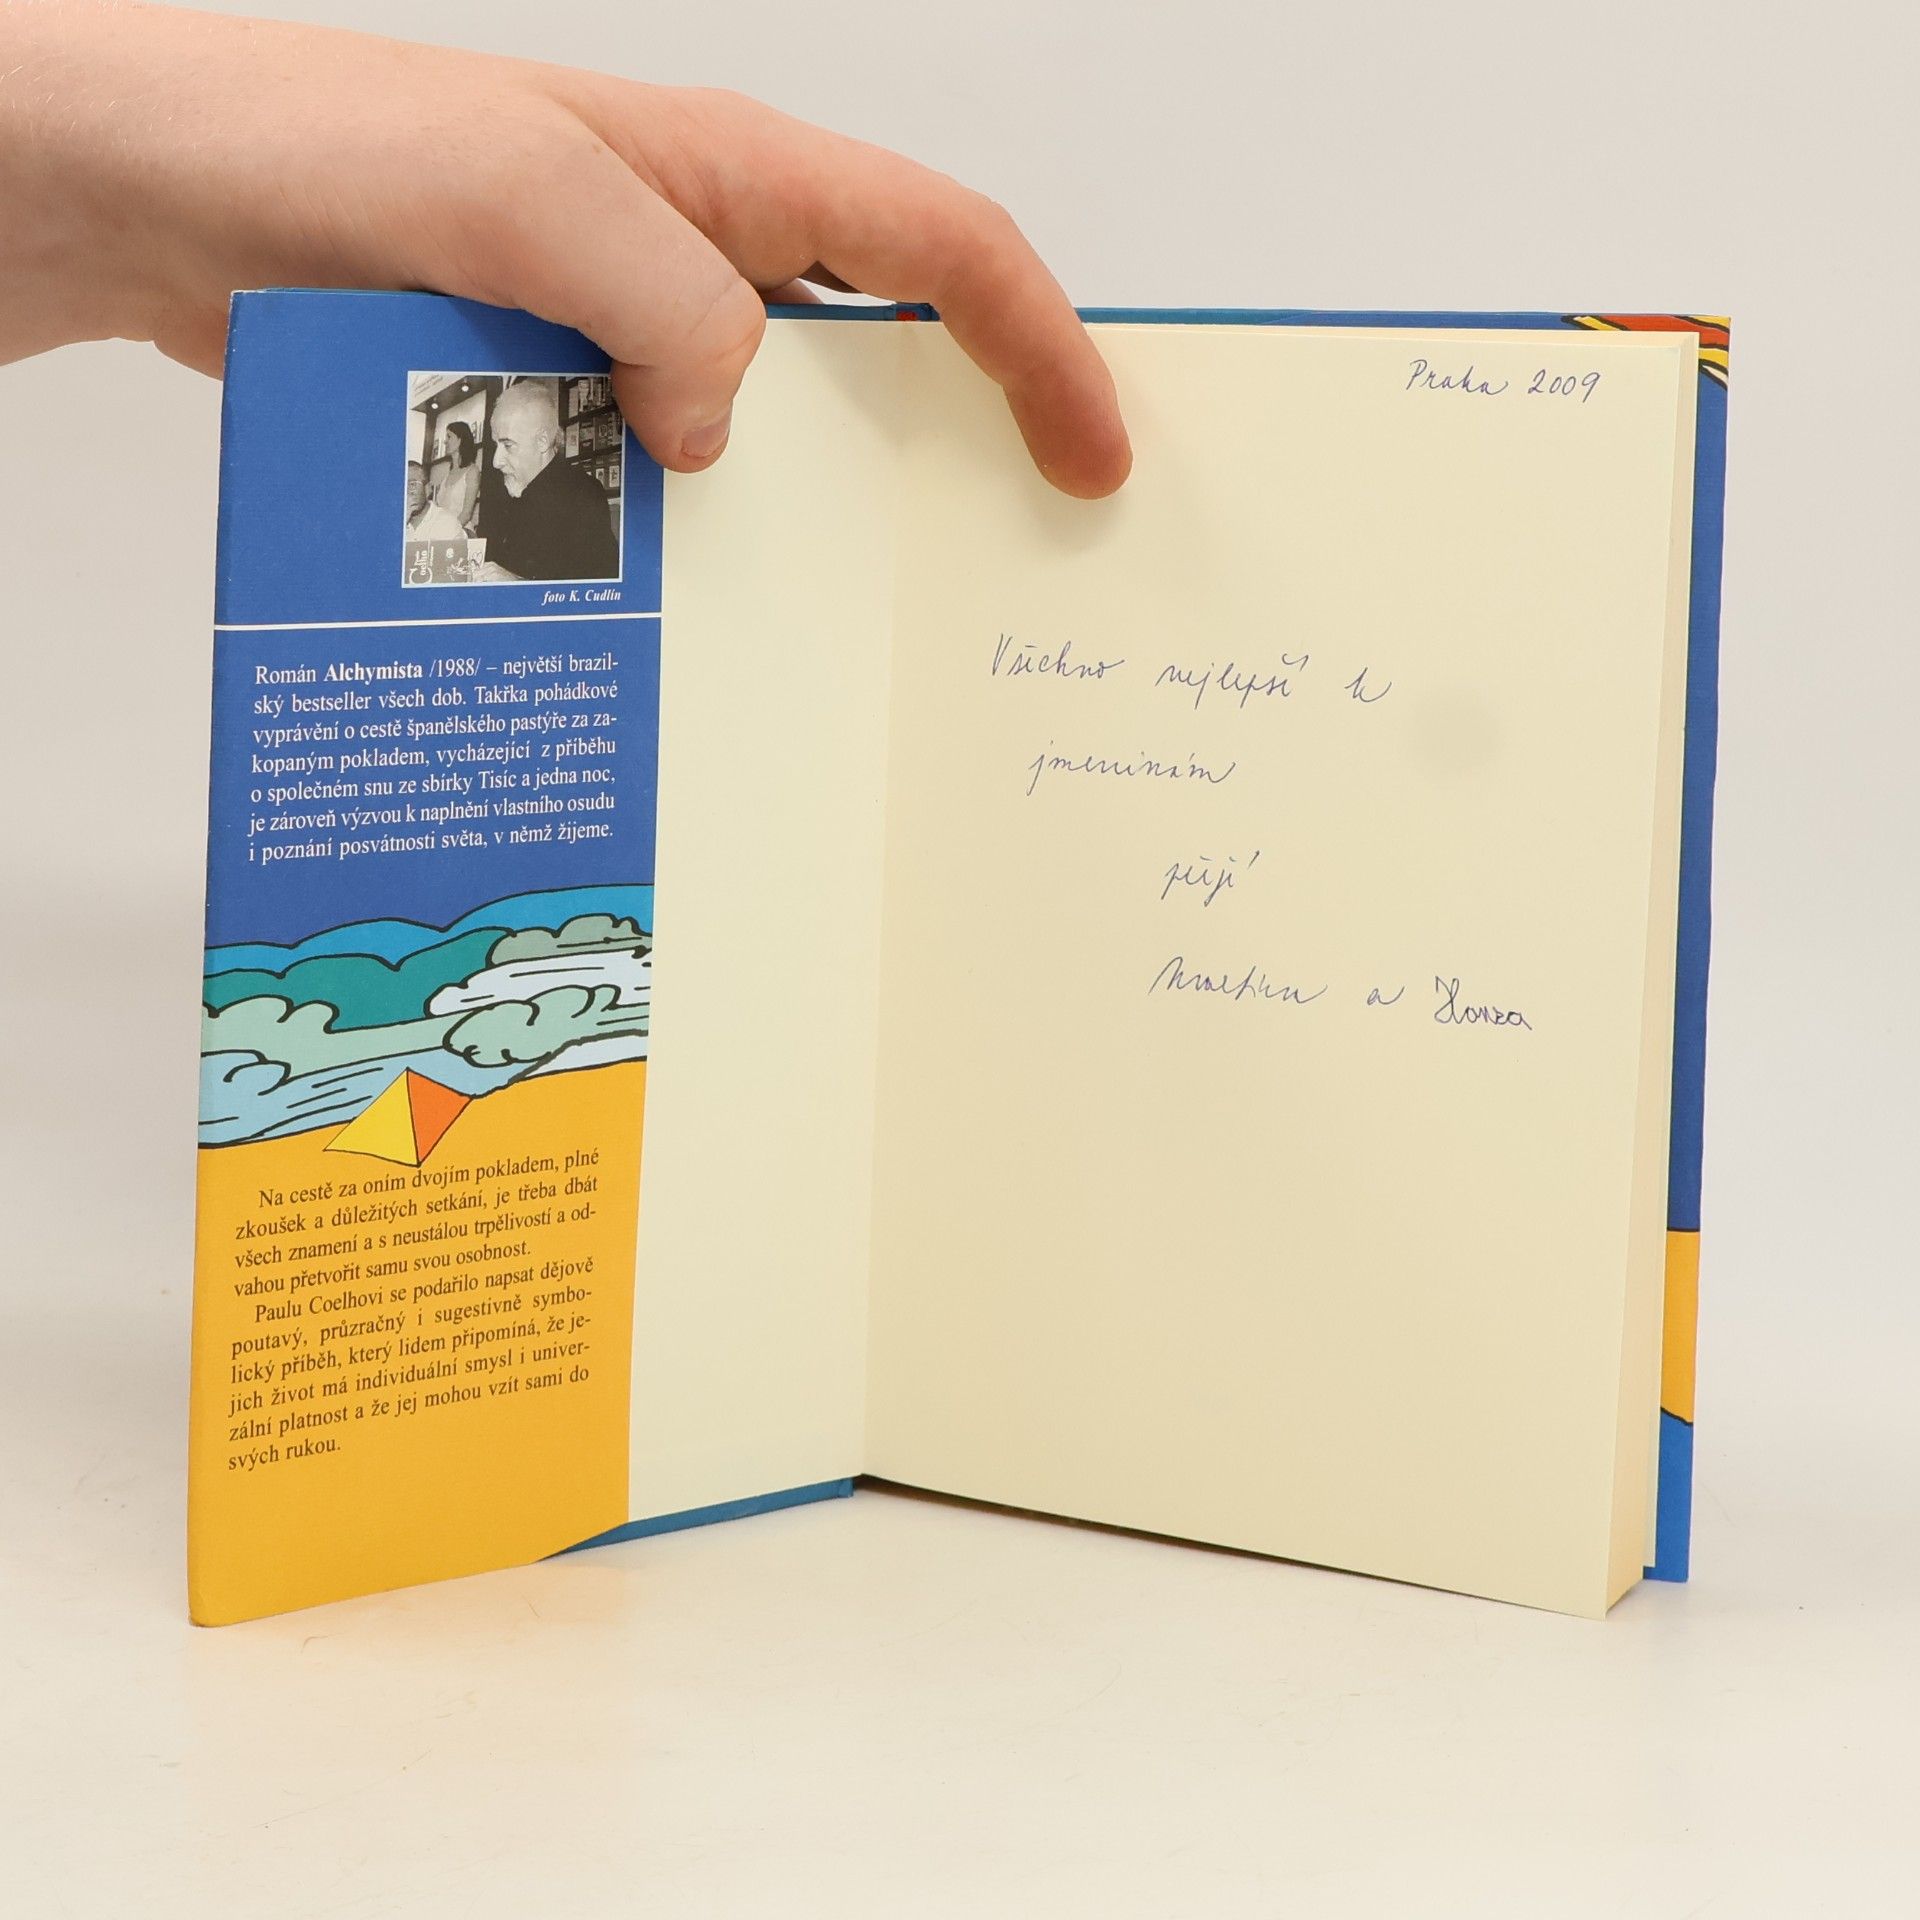 foto K. Cudlín
Román Alchymista /1988/ – největší brazil-
ský bestseller všech dob. Takřka pohádkové
vyprávění o cestě španělského pastýře za za-
kopaným pokladem, vycházející z příběhu
o společném snu ze sbírky Tisíc a jedna noc,
je zároveň výzvou k naplnění vlastního osudu
i poznání posvátnosti světa, v němž žijeme.
Na cestě za oním dvojím pokladem, plné
zkoušek a důležitých setkání, je třeba dbát
všech znamení a s neustálou trpělivostí a od-
vahou přetvořit samu svou osobnost.
Paulu Coelhovi se podařilo napsat dějově
poutavý, průzračný i sugestivně symbo-
lický příběh, který lidem připomíná, že je-
jich život má individuální smysl i univer-
zální platnost a že jej mohou vzít sami do
svých rukou.
Praha 2009
Všechno nejlepší k
jmeninám
přejí
Martina a Honza